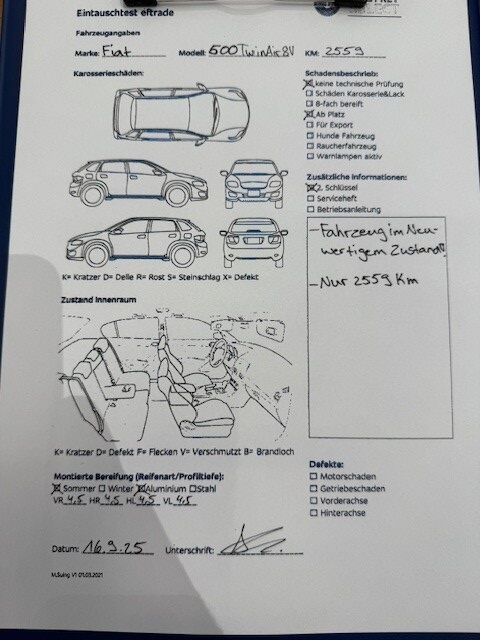 Eintauschtest eftrade
SELECT
Fahrzeugangaben
Marke: Fiat Modell: 500 TwinAir 8V KM: 2559
Karosserieschäden:
Schadensbeschrieb:
keine technische Prüfung
Schäden Karosserie&Lack
8-fach bereift
Ab Platz
Für Export
Hunde Fahrzeug
Raucherfahrzeug
Warnlampen aktiv
Zusätzliche Informationen:
2. Schlüssel
Serviceheft
Betriebsanleitung
- Fahrzeug im Neu-
wertigem Zustand!!
- Nur 2559 Km
K= Kratzer D= Delle R= Rost S= Steinschlag X= Defekt
Zustand Innenraum
K= Kratzer D= Defekt F= Flecken V= Verschmutzt B= Brandloch
Montierte Bereifung (Reifenart/Profiltiefe):
Sommer Winter Aluminium Stahl
VR 4,5 HR 4,5 HL 4,5 VL 4,5
Defekte:
Motorschaden
Getriebeschaden
Vorderachse
Hinterachse
Datum: 16.9.25 Unterschrift:
M.Suing V1 01.03.2021